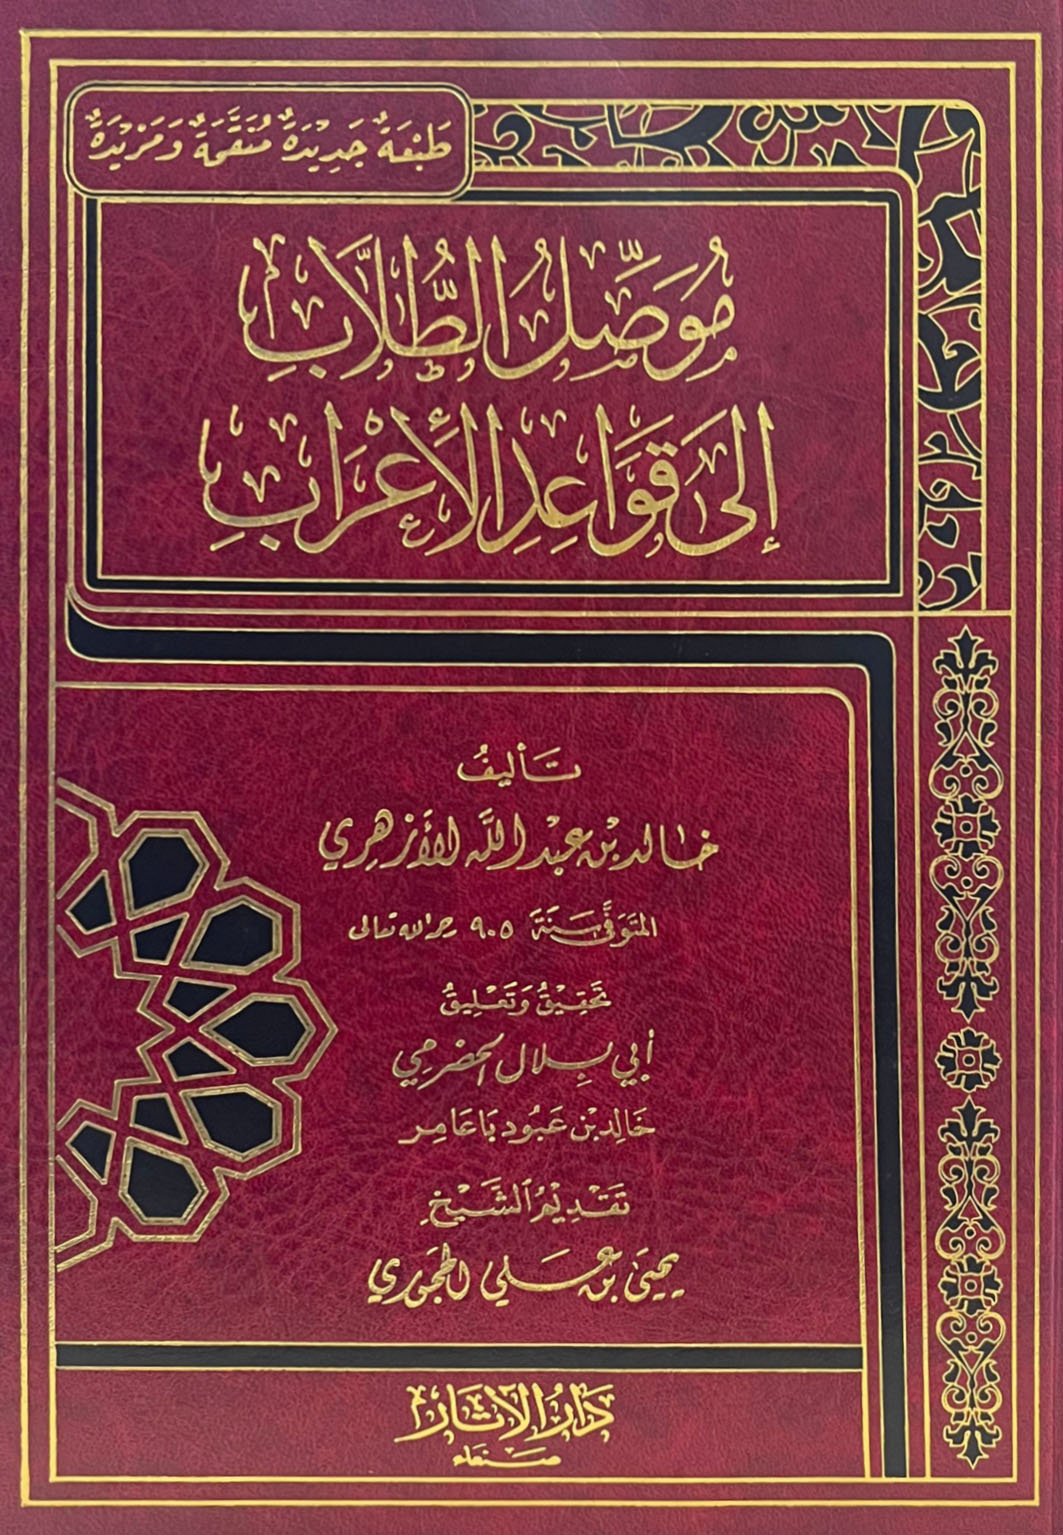 طَبْعَةٌ جَدِيْدَةٌ مُنَقَّحَةٌ وَمَزِيْدَةٌ
مُوَصِّلُ الطُّلَّابِ
إِلَى قَوَاعِدِ الْإِعْرَابِ
تَأليفُ
خالد بْن عَبْد اللَّه الأَزهَرِي
المتَوَفَّى سَنَة ٩٠٥ رحمه الله تعالى
تَحْقِيْقُ وَتَعْلِيقُ
أبي بلال الحضرمي
خَالِد بْن عَبُود بَاعَامِر
تَقْدِيْمُ الشَّيْخِ
يحيى بن علي الحجوري
دَارُ الآثَار
صنعاء